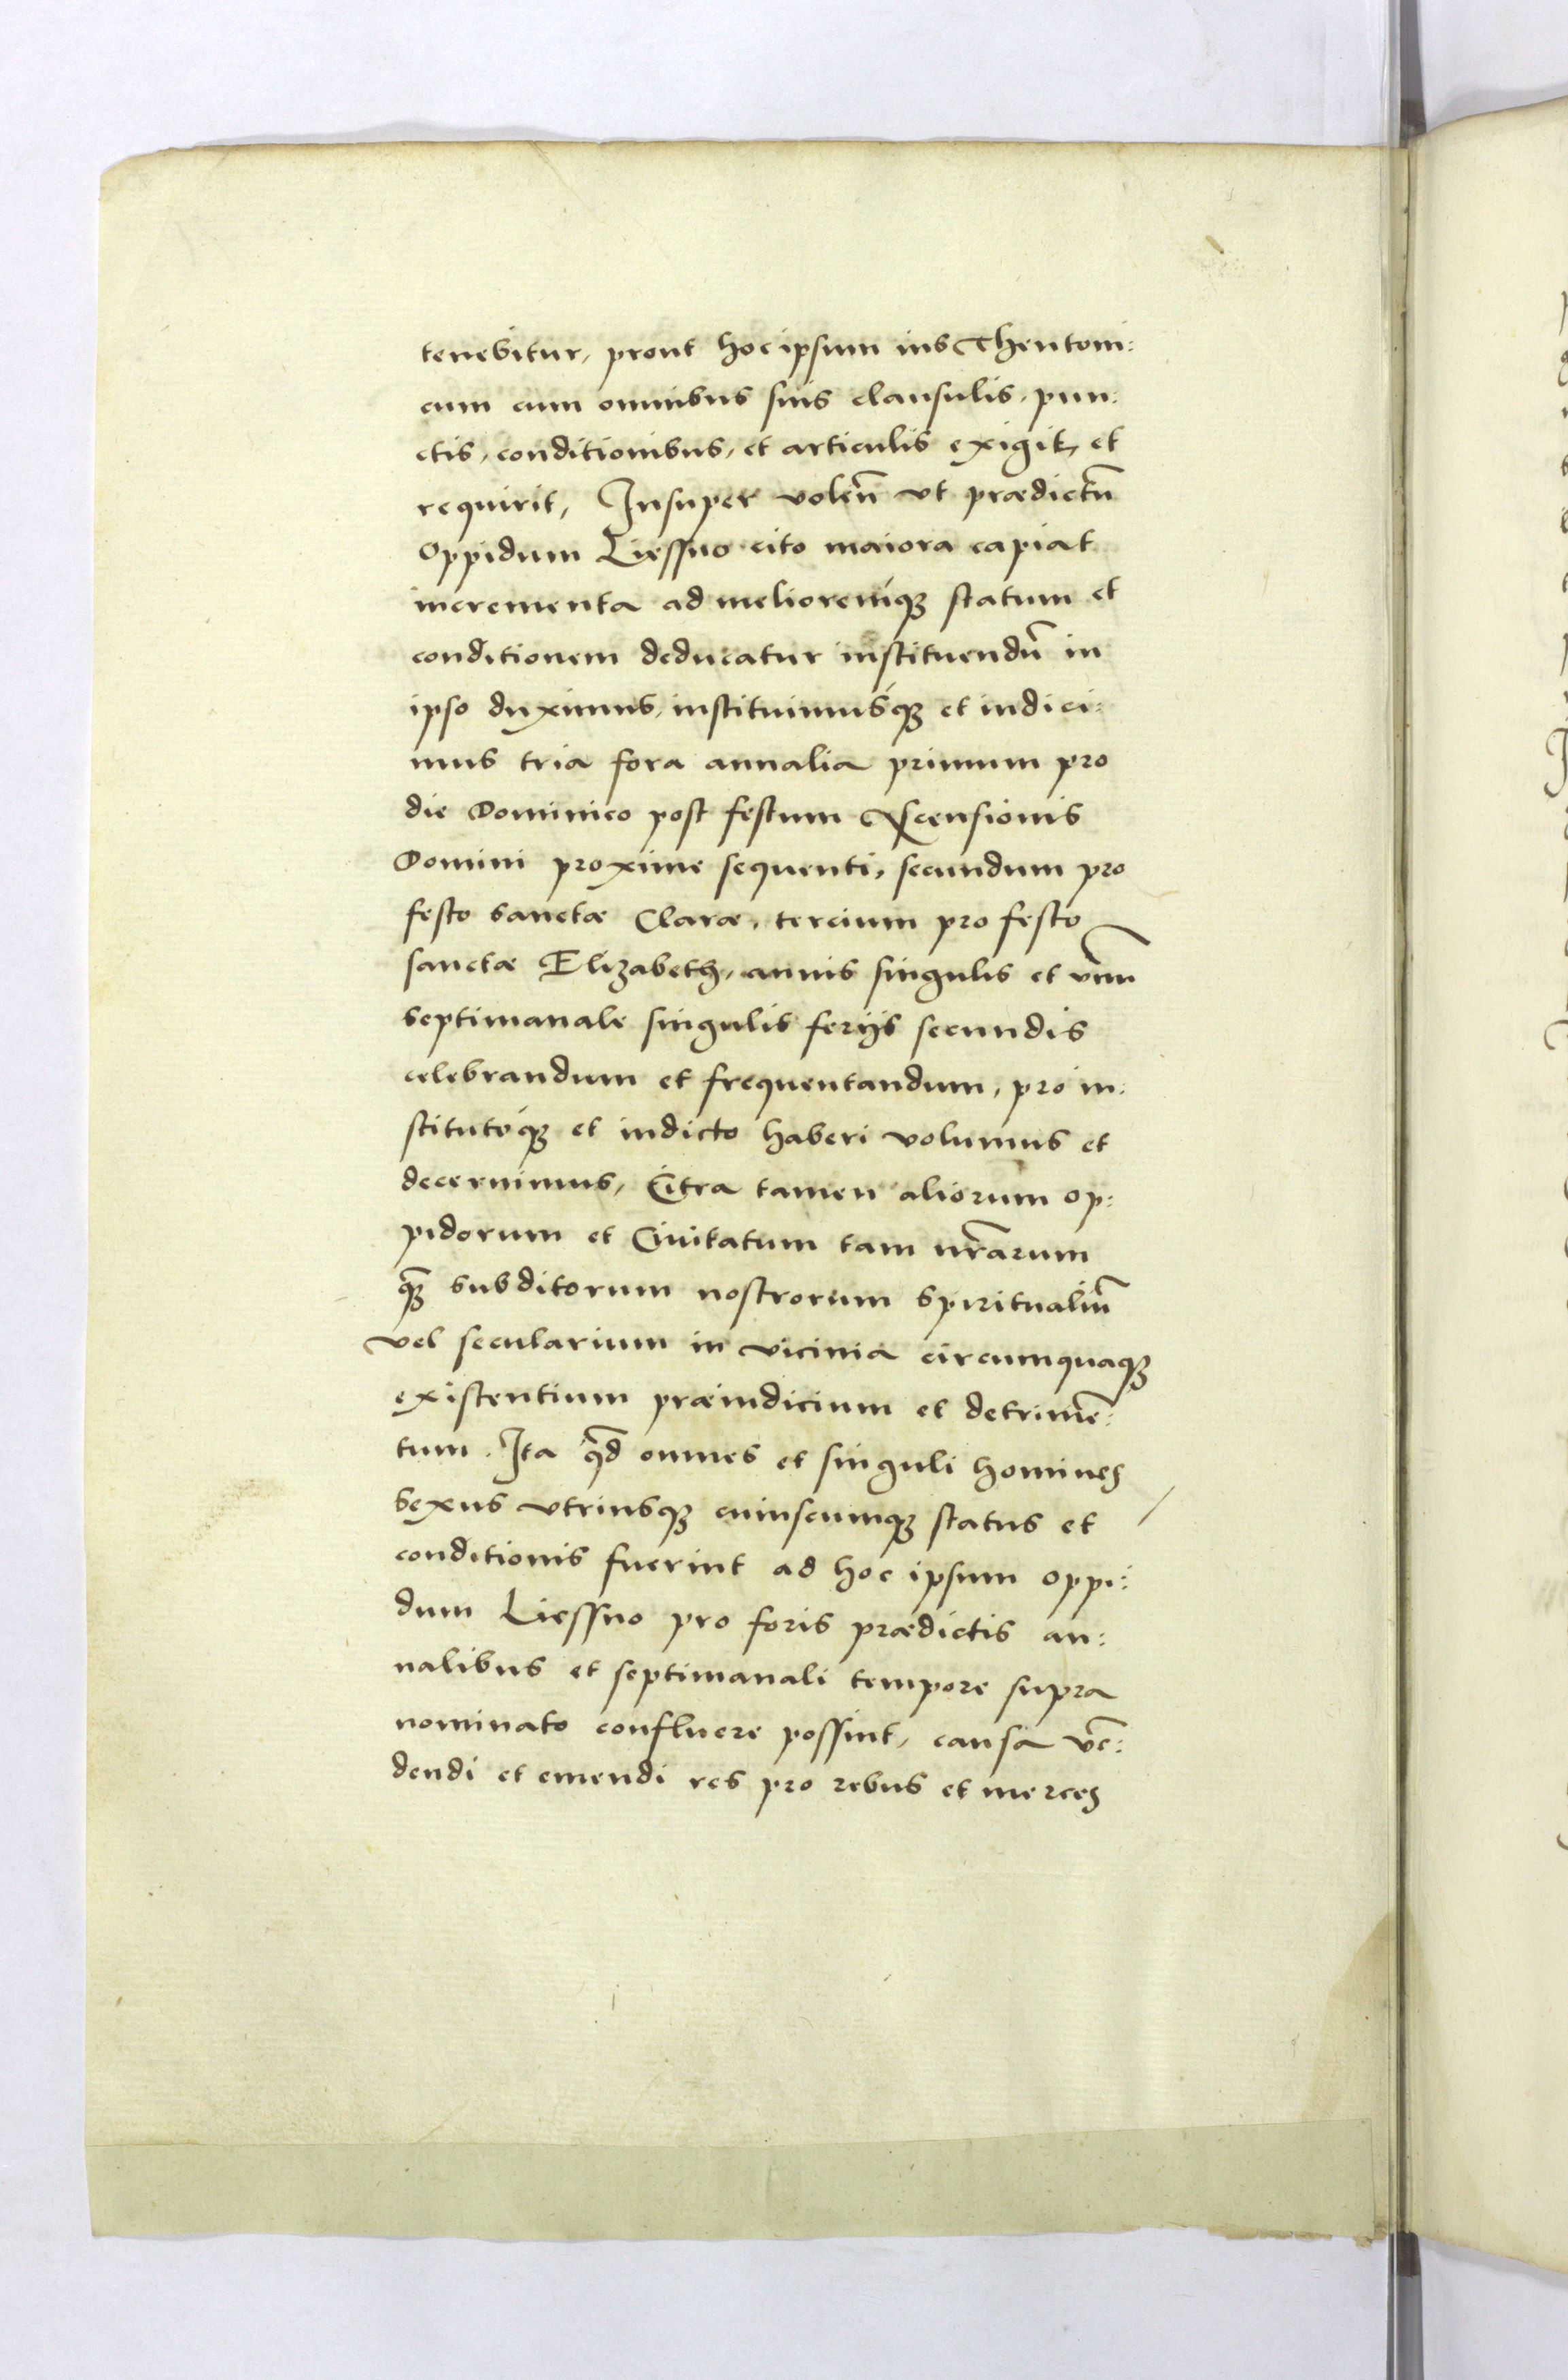 tenebitur, prout hoc ipsum ius Theutoni:
cum cum omnibus suis clausulis, pun:
ctis, conditionibus, et articulis exigit, et
requirit, Insuper volen̄ vt prædictū
Oppidum Liessno cito maiora capiat
incrementa ad melioremq́ꝫ statum et
conditionem deducatur instituendū in
ipso duximus, instituimusq́ꝫ et indici:
mus tria fora annalia primum pro
die Dominico post festum Ascensionis
Domini proxime sequenti, secundum pro
festo sanctæ Claræ, tercium pro festo
sanctæ Elizabeth, annis singulis et vnū
septimanale singulis ferijs secundis
celebrandum et frequentandum, pro in:
stitutoq́ꝫ et indicto haberi volumus et
decernimus, Citra tamen aliorum op:
pidorum et Ciuitatum tam nr̄arum
q̄ꝫ subditorum nostrorum spiritualiū
vel secularium in vicinia circumquaqꝫ
existentium præiudicium et detrimē:
tum. Ita qd̄ omnes et singuli homines
sexus vtriusqꝫ cuiuscumqꝫ status et
conditionis fuerint ad hoc ipsum oppi:
dum Liessno pro foris prædictis an:
nalibus et septimanali tempore supra
nominato confluere possint, causa vē:
dendi et emendi res pro rebus et merces